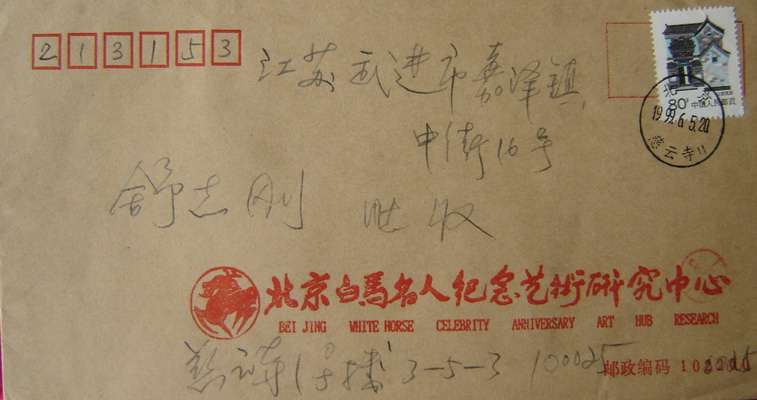 213153
江苏武进市嘉泽镇
中街16号
舒志刚 收
80分 中国人民邮政
北京
1999.6.5.20
慈云寺11
北京白馬名人纪念艺術研究中心
BEI JING WHITE HORSE CELEBRITY ANNIVERSARY ART HUB RESEARCH
慈云寺1号楼3-5-3 100025
邮政编码